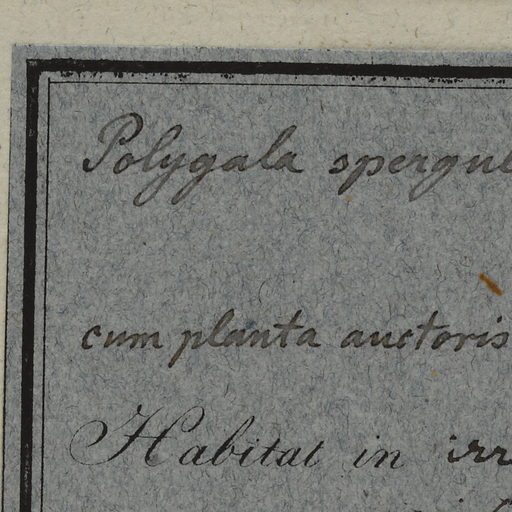 Polygala spergul
cum planta auctoris
Habitat in irr